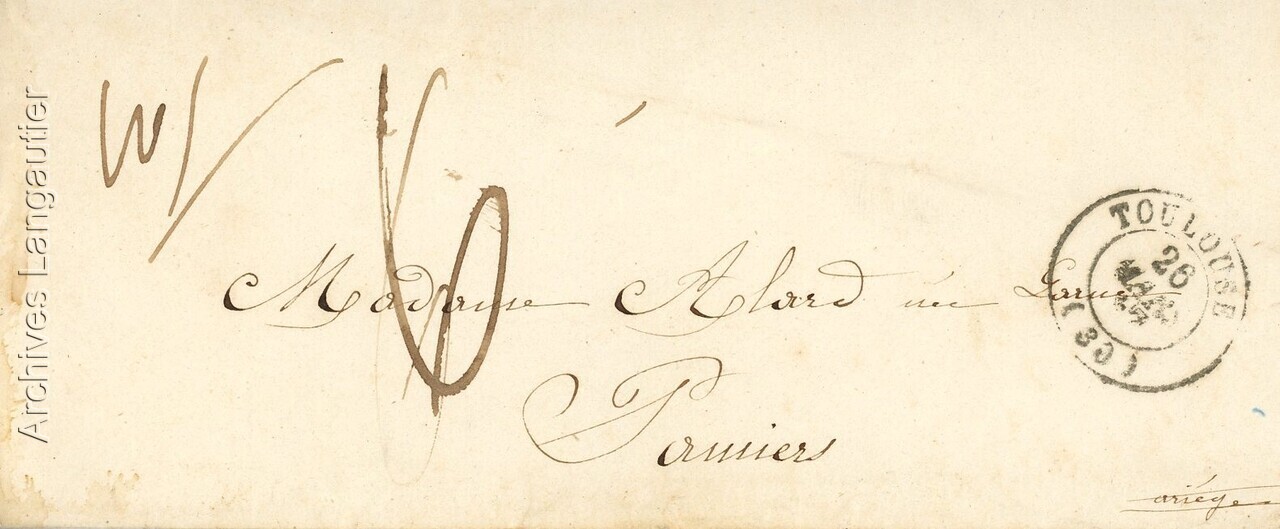 Archives Langautier
6
Madame Alard née
Pamiers
ariége
TOULOUSE
26
MARS
(30)